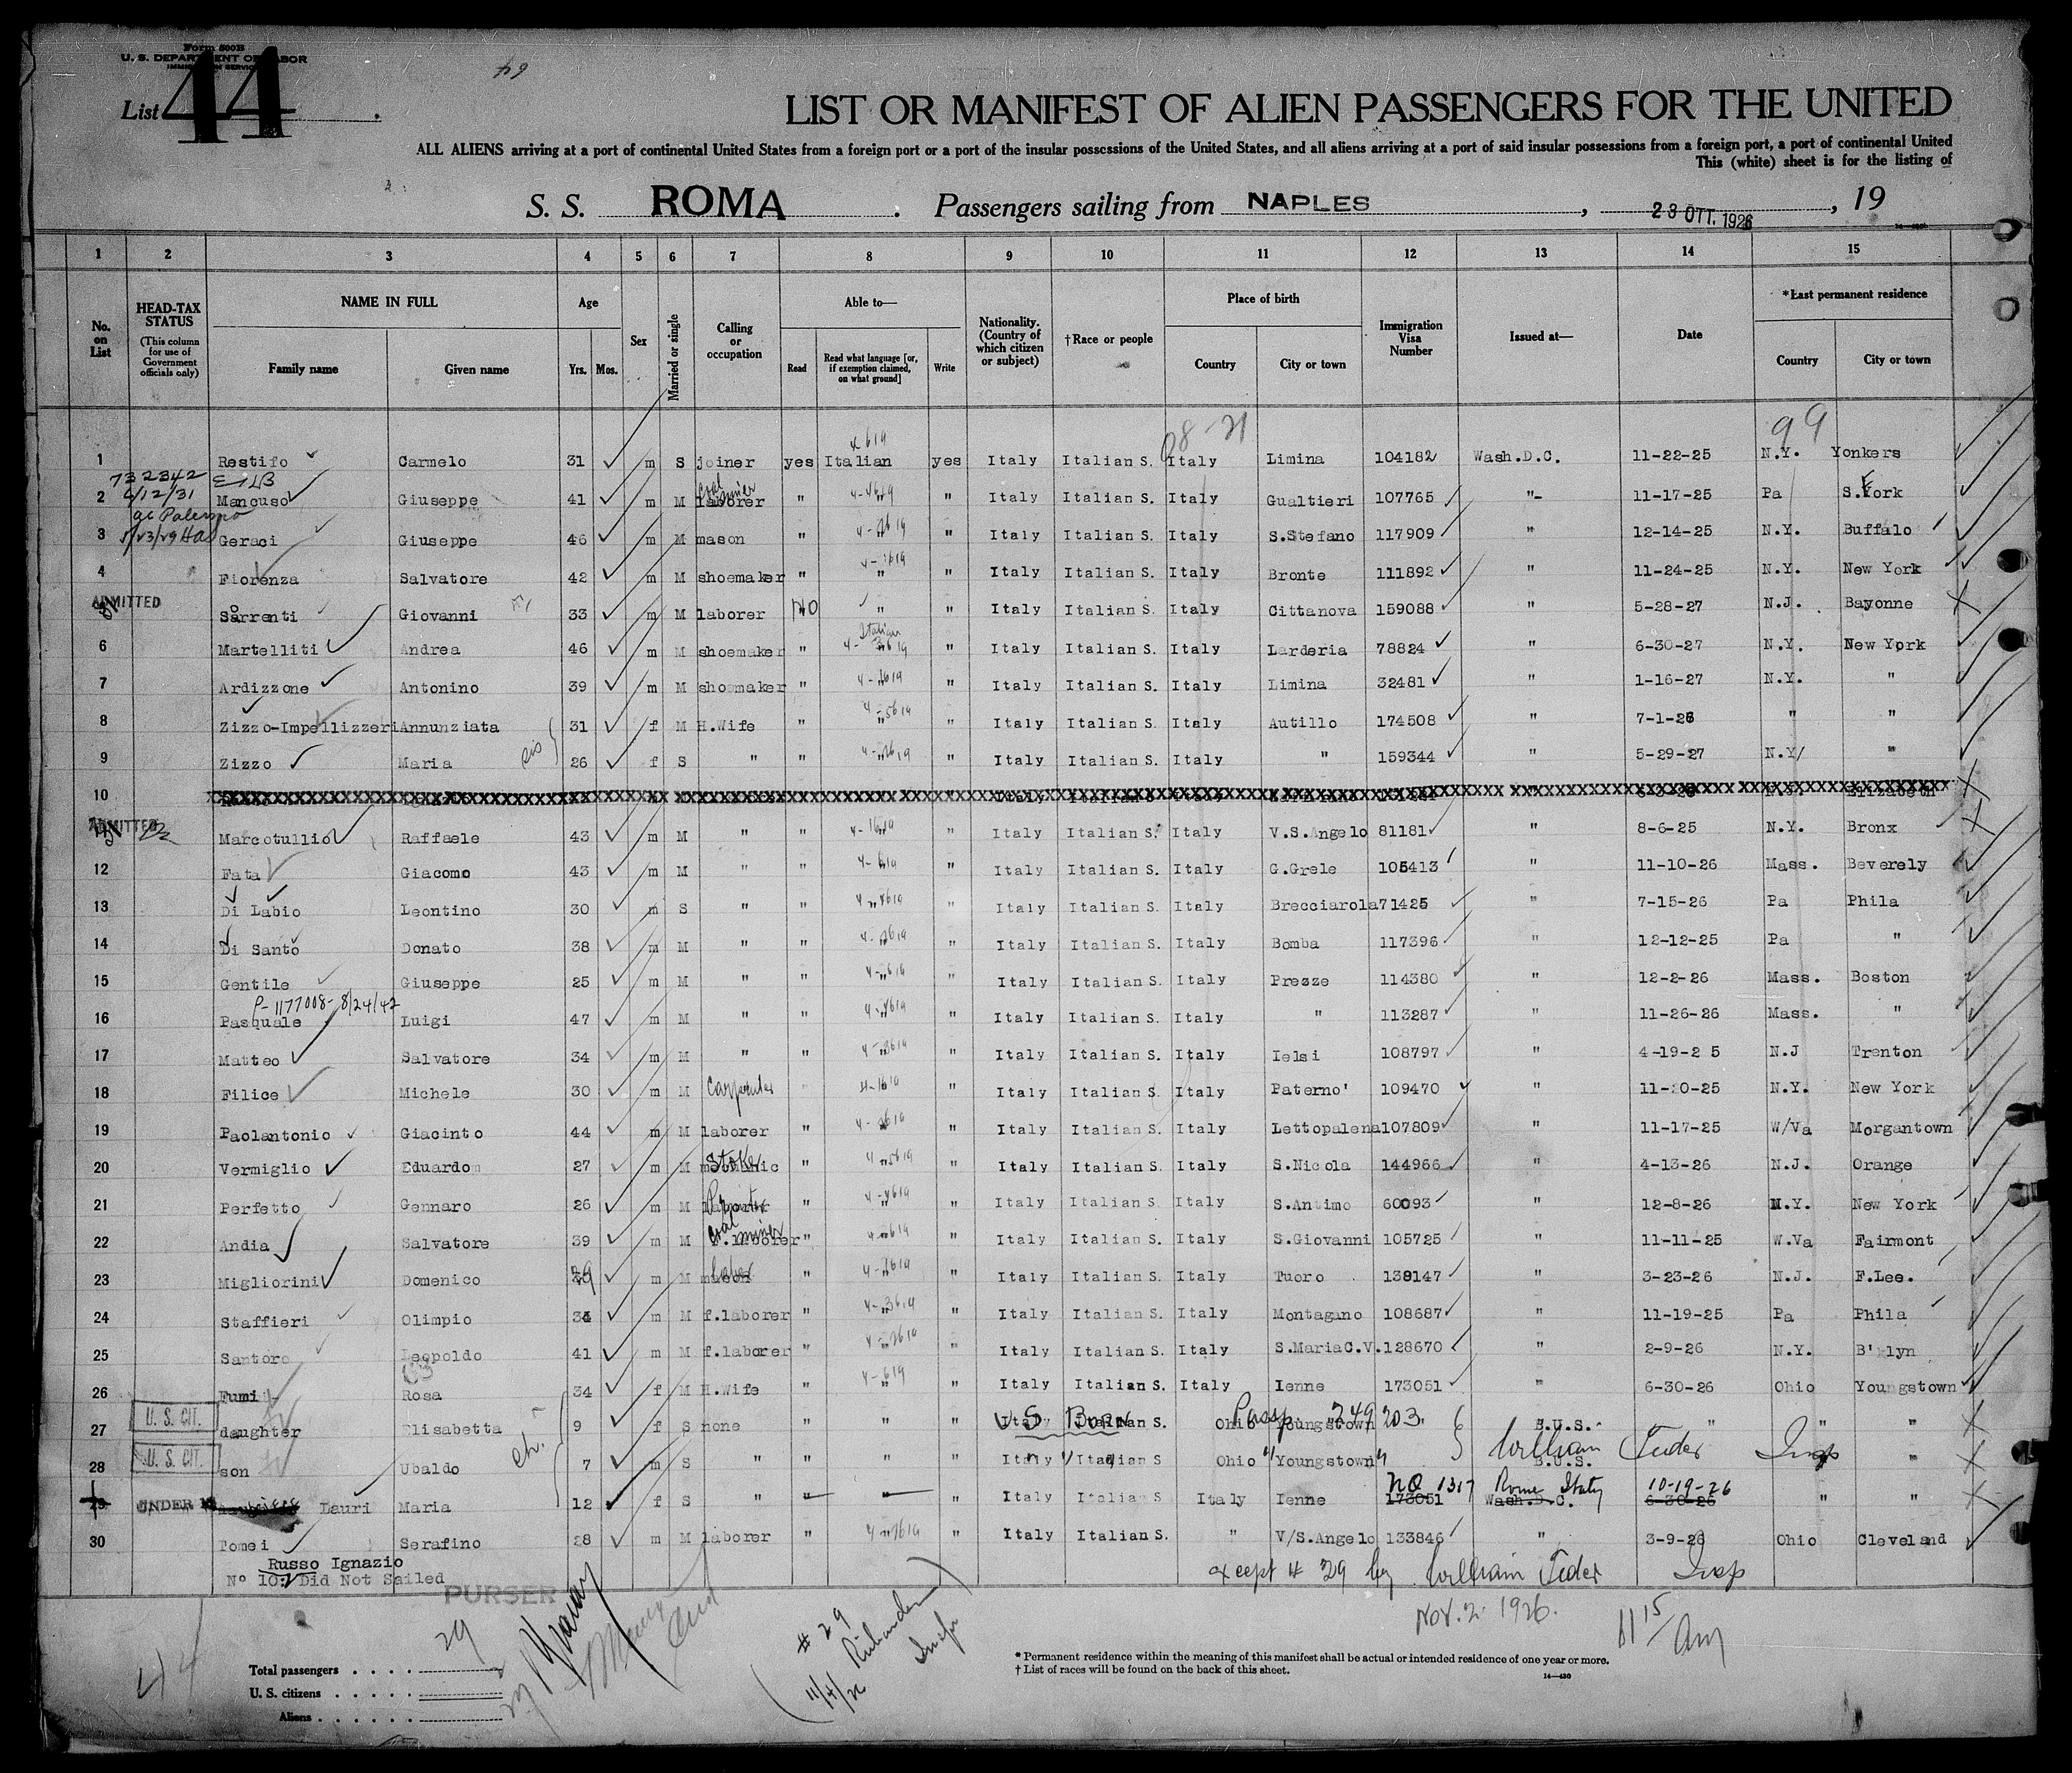 Form 500B
U. S. DEPARTMENT OF LABOR
IMMIGRATION SERVICE
List 44
LIST OR MANIFEST OF ALIEN PASSENGERS FOR THE UNITED
ALL ALIENS arriving at a port of continental United States from a foreign port or a port of the insular possessions of the United States, and all aliens arriving at a port of said insular possessions from a foreign port, a port of continental United
This (white) sheet is for the listing of
S. S. ROMA . Passengers sailing from NAPLES , 23 OTT. 1926 , 19
1 2 3 4 5 6 7 8 9 10 11 12 13 14 15
No. on List
HEAD-TAX STATUS
(This column for use of Government officials only)
NAME IN FULL
Family name Given name
Age
Yrs. Mos.
Sex
Married or single
Calling or occupation
Able to—
Read
Read what language [or, if exemption claimed, on what ground]
Write
Nationality. (Country of which citizen or subject)
†Race or people
Place of birth
Country City or town
Immigration Visa Number
Issued at—
Date
*Last permanent residence
Country City or town
98-21 99
1 Restifo Carmelo 31 m S joiner yes Italian yes Italy Italian S. Italy Limina 104182 Wash.D.C. 11-22-25 N.Y. Yonkers
732342
6/12/31
2 Mancuso Giuseppe 41 m M laborer coal miner " " " Italy Italian S. Italy Gualtieri 107765 "- 11-17-25 Pa S.York
ac Palermo
3 Geraci Giuseppe 46 m M mason " " " Italy Italian S. Italy S.Stefano 117909 " 12-14-25 N.Y. Buffalo
4 Fiorenza Salvatore 42 m M shoemaker " " " Italy Italian S. Italy Bronte 111892 " 11-24-25 N.Y. New York
ADMITTED Sorrenti Giovanni 33 m M laborer NO " " Italy Italian S. Italy Cittanova 159088 " 5-28-27 N.J. Bayonne
6 Martelliti Andrea 46 m M shoemaker " Italian " Italy Italian S. Italy Larderia 78824 " 6-30-27 N.Y. New York
7 Ardizzone Antonino 39 m M shoemaker " " " Italy Italian S. Italy Limina 32481 " 1-16-27 N.Y. "
8 Zizzo-Impellizzeri Annunziata 31 f M H.Wife " " " Italy Italian S. Italy Autillo 174508 " 7-1-26 " "
9 Zizzo Maria sis 26 f S " " " " Italy Italian S. Italy " 159344 " 5-29-27 N.Y/ "
10 Elizabeth
ADMITTED Marcotullio Raffaele 43 m M " " " " Italy Italian S. Italy V.S.Angelo 81181 " 8-6-25 N.Y. Bronx
12 Fata Giacomo 43 m M " " " " Italy Italian S. Italy G.Grele 105413 " 11-10-26 Mass. Beverely
13 Di Labio Leontino 30 m S " " " " Italy Italian S. Italy Brecciarola 71425 " 7-15-26 Pa Phila
14 Di Santo Donato 38 m M " " " " Italy Italian S. Italy Bomba 117396 " 12-12-25 Pa "
15 Gentile Giuseppe 25 m M " " " " Italy Italian S. Italy Prezze 114380 " 12-2-26 Mass. Boston
P-1177008-8/24/42
16 Pasquale Luigi 47 m M " " " " Italy Italian S. Italy " 113287 " 11-26-26 Mass. "
17 Matteo Salvatore 34 m M " " " " Italy Italian S. Italy Ielsi 108797 " 4-19-2 5 N.J Trenton
18 Filice Michele 30 m M Carpenter " " Italy Italian S. Italy Paterno' 109470 " 11-20-25 N.Y. New York
19 Paolantonio Giacinto 44 m M laborer " " " Italy Italian S. Italy Lettopalena 107809 " 11-17-25 W/Va Morgantown
20 Vermiglio Eduardo 27 m M mechanic " " " Italy Italian S. Italy S.Nicola 144966 " 4-13-26 N.J. Orange
21 Perfetto Gennaro 26 m M " " " Italy Italian S. Italy S.Antimo 60093 " 12-8-26 N.Y. New York
22 Andia Salvatore 39 m M f.laborer coal miner " " " Italy Italian S. Italy S.Giovanni 105725 " 11-11-25 W.Va Fairmont
23 Migliorini Domenico 29 m M mason " " " Italy Italian S. Italy Tuoro 139147 " 3-23-26 N.J. F.Lee.
24 Staffieri Olimpio 34 m M f.laborer " " " Italy Italian S. Italy Montagano 108687 " 11-19-25 Pa Phila
25 Santoro Leopoldo 41 m M f.laborer " " " Italy Italian S. Italy S.MariaC.V. 128670 " 2-9-26 N.Y. B'klyn
26 Fumi Rosa 34 f M H.Wife " " " Italy Italian S. Italy Ienne 173051 " 6-30-26 Ohio Youngstown
U. S. CIT. 27 daughter Elisabetta 9 f S none " " " Italy Italian S. U S Born Ohio Youngstown Passp. 249203 B.U.S. " " "
U. S. CIT. 28 son Ubaldo ch. 7 m S " " " " Italy Italian S Ohio Youngstown B.U.S. William Tudor Insp "
29 UNDER 16 Lauri Maria 12 f S " " " " Italy Italian S Italy Ienne 173051 NO 1317 Wash.D.C. Rome Italy 6-30-26 10-19-26 " "
30 Tomei Serafino 28 m M laborer " " " Italy Italian S. " V/S.Angelo 133846 " 3-9-26 Ohio Cleveland
Russo Ignazio
Nº 10: Did Not Sailed
except # 29 by William Tudor Insp
PURSER
Nov. 2 1926. 11 15/ am
# 29
11/4/26
Insp
29
44
Total passengers . . . .
U. S. citizens . . . . .
Aliens . . . . . .
* Permanent residence within the meaning of this manifest shall be actual or intended residence of one year or more.
† List of races will be found on the back of this sheet.
14—430